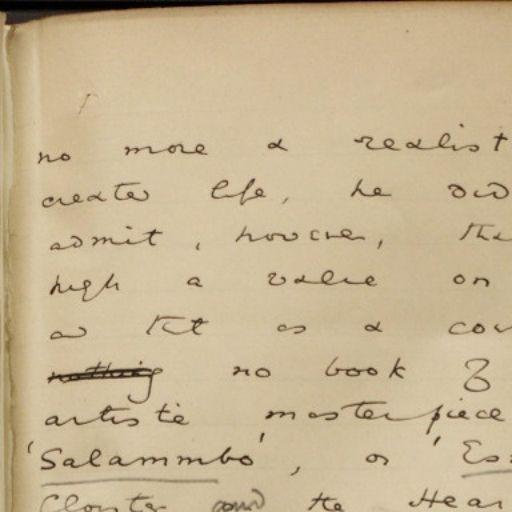 no more a realist
created life, he did
admit, however, tha
high a value on
a that as a con
nothing no book of
artistic masterpiece
'Salammbo', or 'Es
Cloister and the Hear